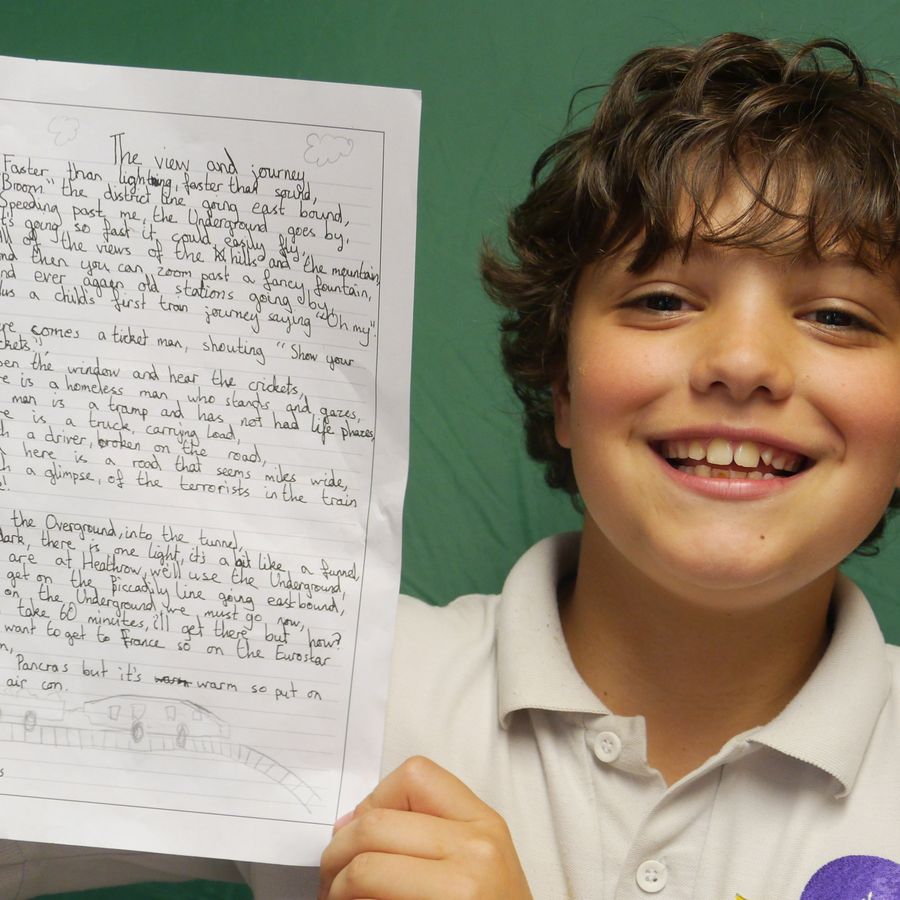 The view and journey
Faster than lightning, faster than sound,
"Broom" the district line going east bound,
Speeding past me, the Underground goes by,
t's going so fast it could easily fly,
ll of the views of the hills and the mountain,
nd then you can zoom past a fancy fountain,
nd ever again old stations going by,
lus a child's first train journey saying "Oh my".
ere comes a ticket man, shouting "Show your
ckets",
pen the window and hear the crickets,
re is a homeless man who stands and gazes,
man is a tramp and has not had life phazes,
re is a truck, carrying load,
h a driver, broken on the road,
here is a road that seems miles wide,
h a glimpse, of the terrorists in the train
e!
the Overground, into the tunnel,
dark, there is one light, it's a bit like a funnel,
are at Heathrow, we'll use the Underground,
get on the Piccadily line going eastbound,
on the Underground we must go now,
take 60 minutes, i'll get there but how?
want to get to France so on the Eurostar
n,
Pancras but it's warm so put on
air con.
s